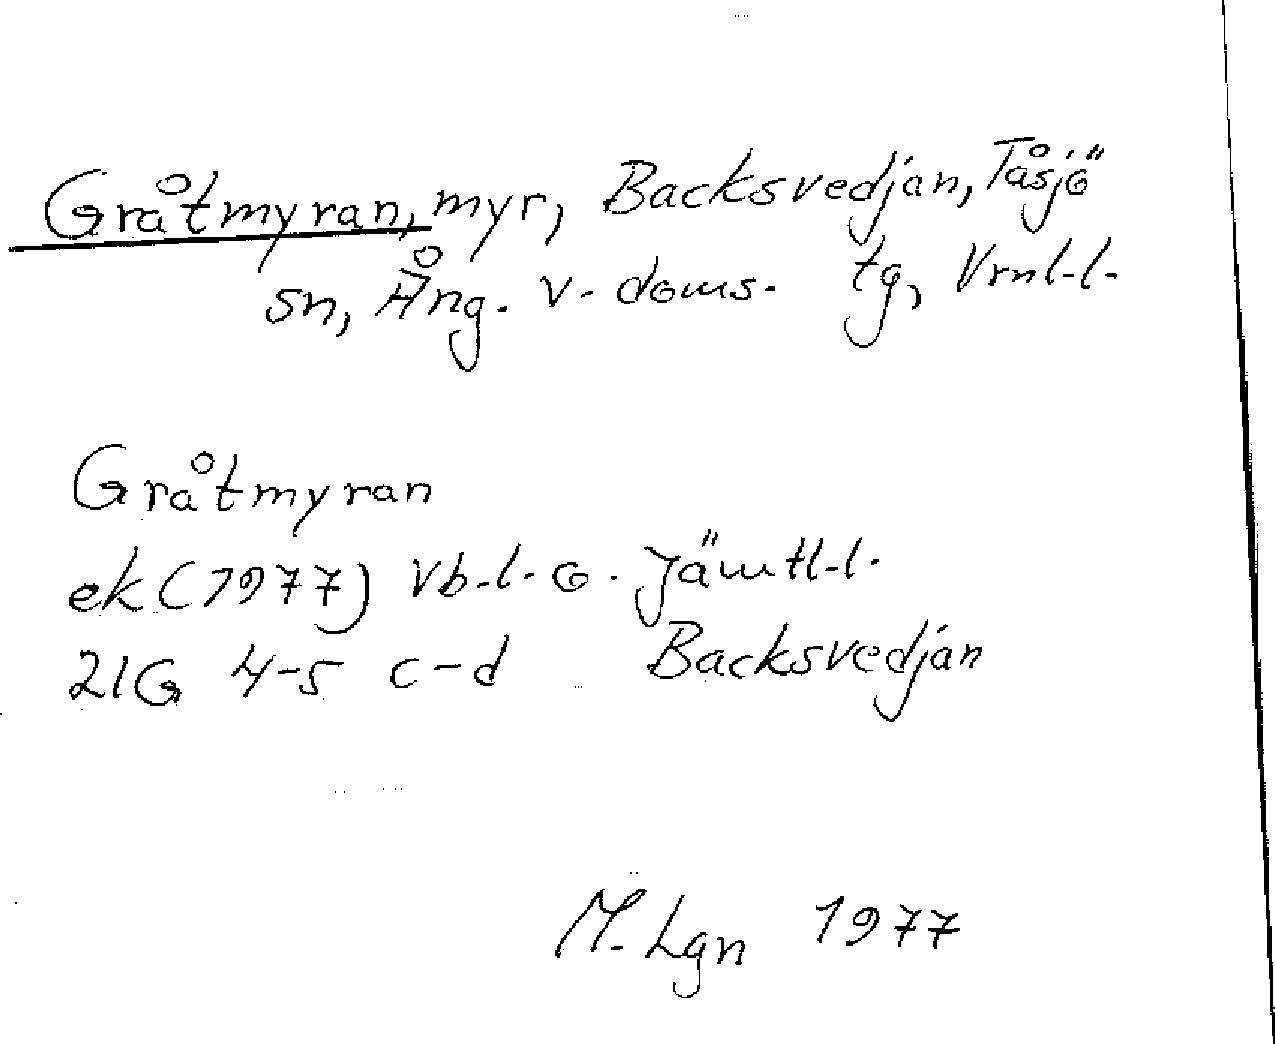 Gråtmyran, myr, Backsvedjan, Tåsjö
sn, Ång. v. doms. tg, Vrnl-l.
Gråtmyran
ek (1977) Vb-l. o. Jämtl-l.
21G 4-5 c-d Backsvedjan
M. Lgn 1977